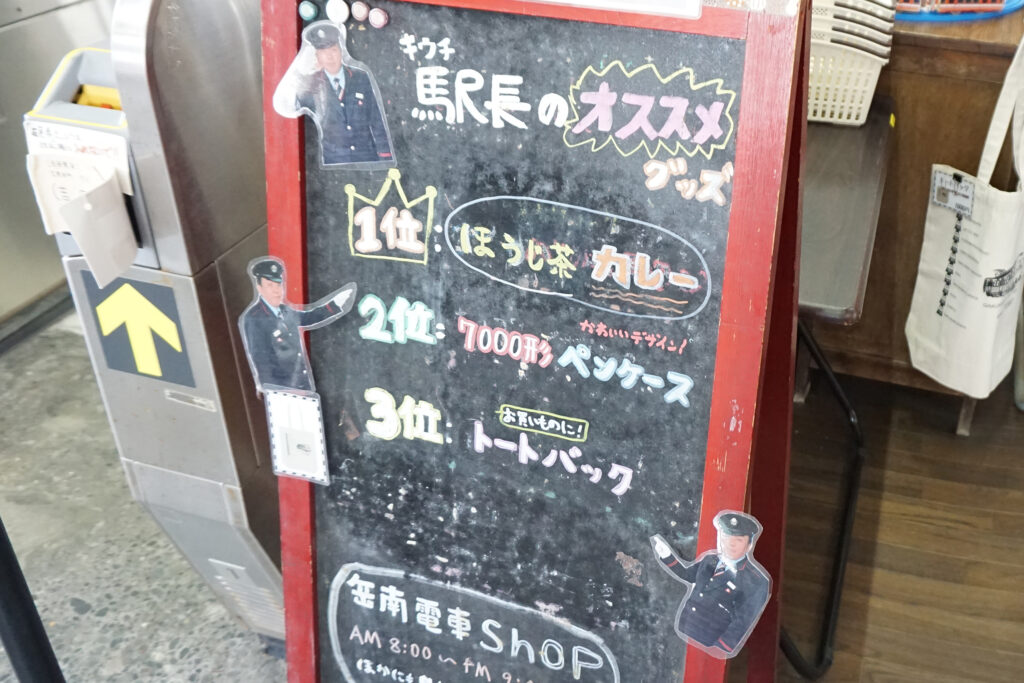 キウチ
駅長のオススメ
グッズ
1位:ほうじ茶カレー
かわいいデザイン!
2位:7000形ペンケース
お買いものに!
3位:トートバック
岳南電車ShOP
AM 8:00〜PM 9:
ほかにも